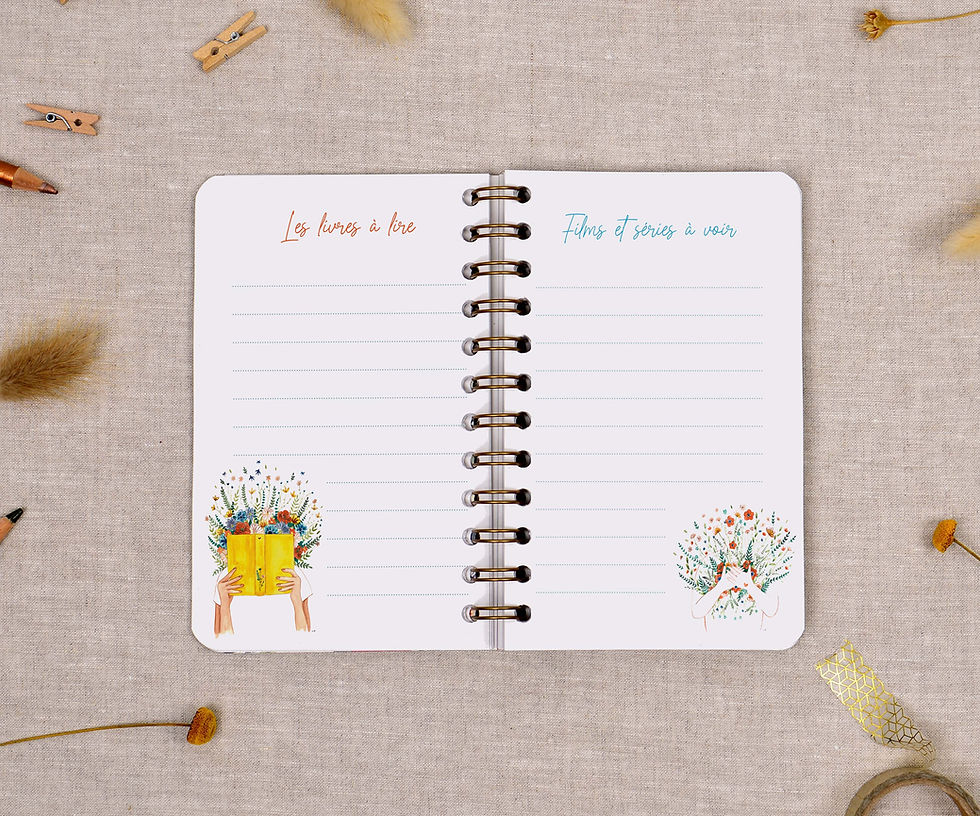 Les livres à lire
Films et séries à voir